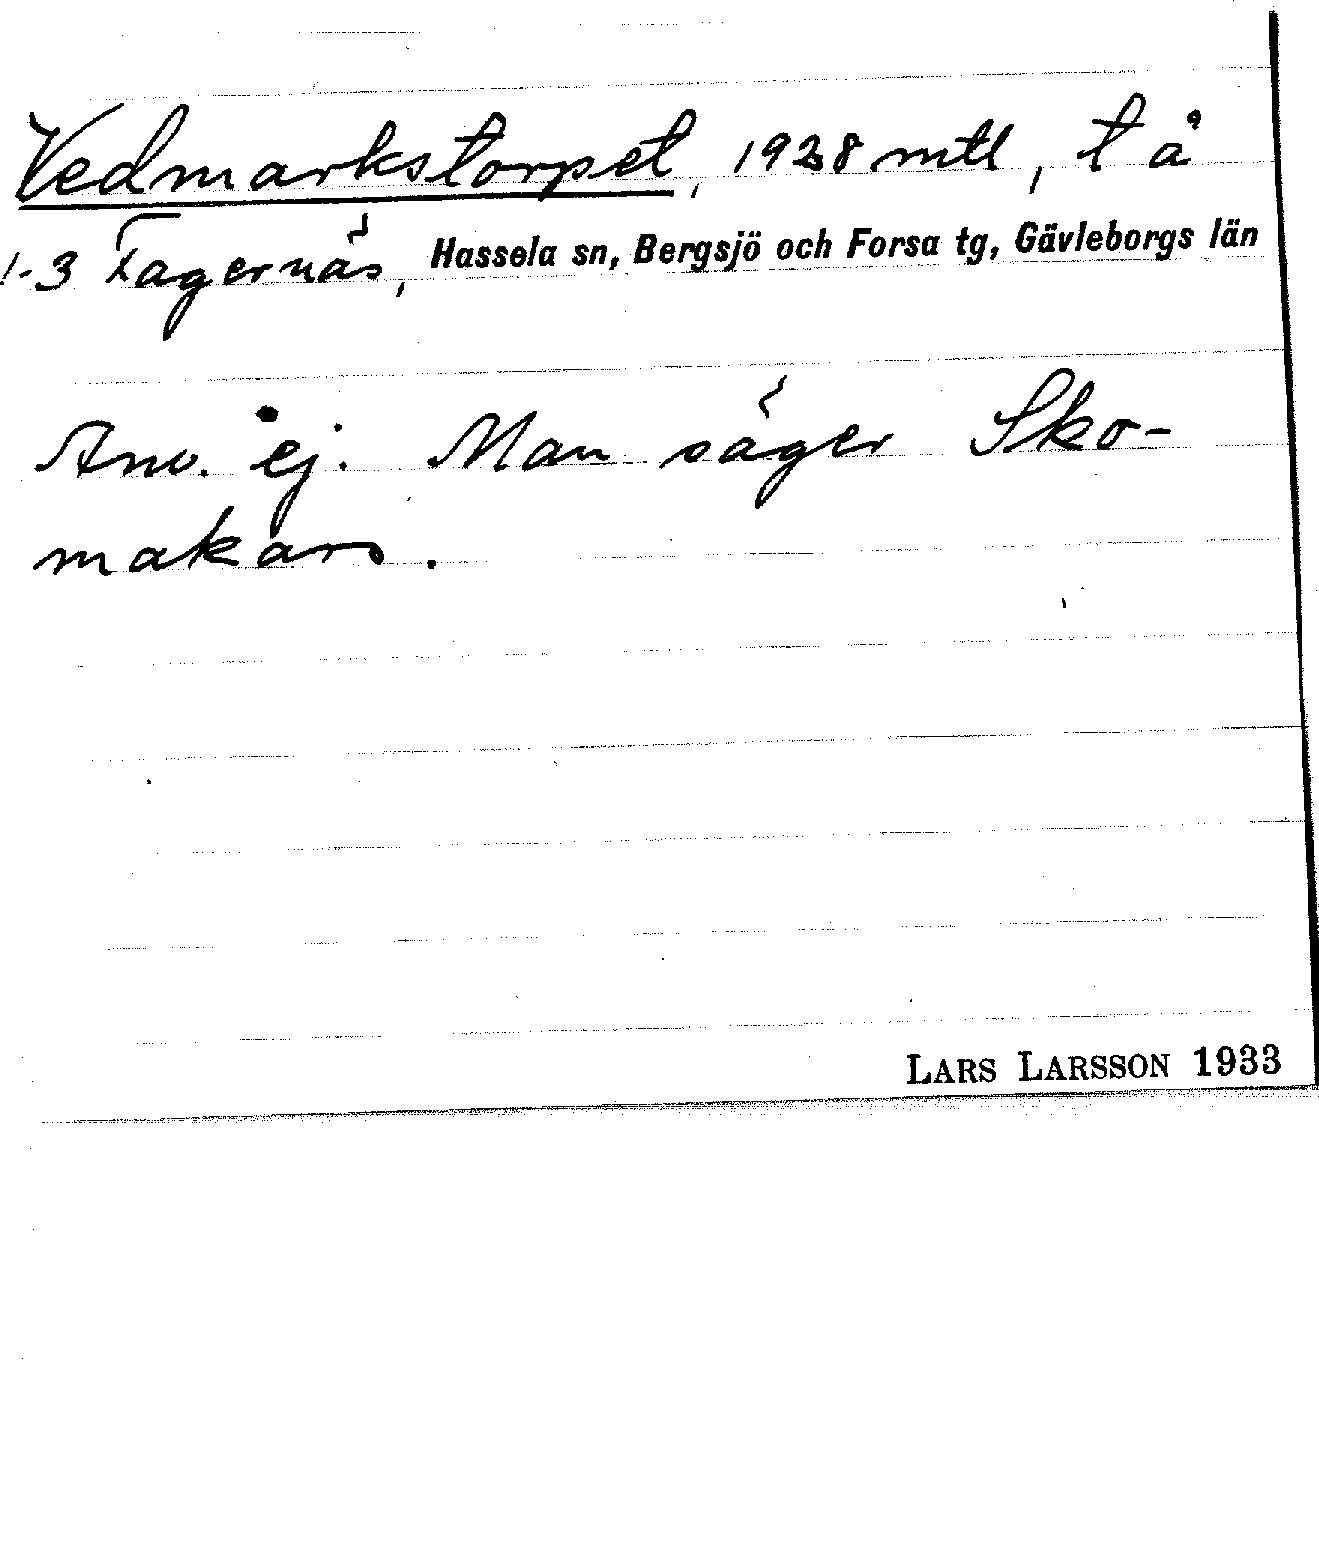 Vedmarkstorpet, 1928 mtl, t å
1-3 Fagernäs, Hassela sn, Bergsjö och Forsa tg, Gävleborgs län
Anv. ej. Man säger Sko-
makars.
LARS LARSSON 1933